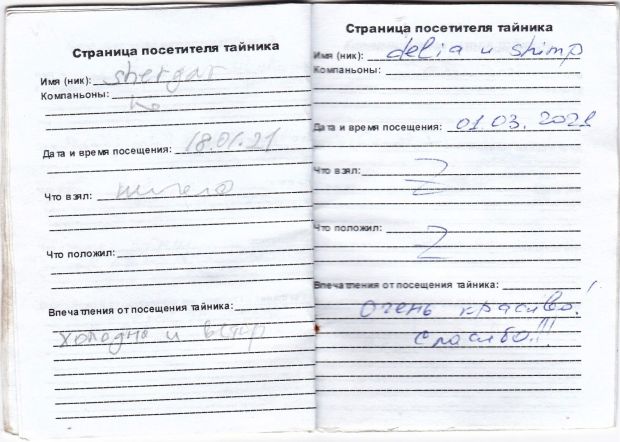 Страница посетителя тайника
Имя (ник): shergar
Компаньоны:
no
Дата и время посещения: 18.01.21
Что взял: ничего
Что положил:
Впечатления от посещения тайника:
холодно и ветер
Страница посетителя тайника
Имя (ник): delia и shimp
Компаньоны:
Дата и время посещения: 01.03.2021
Что взял: Z
Что положил: Z
Впечатления от посещения тайника:
Очень красиво!
Спасибо!!!